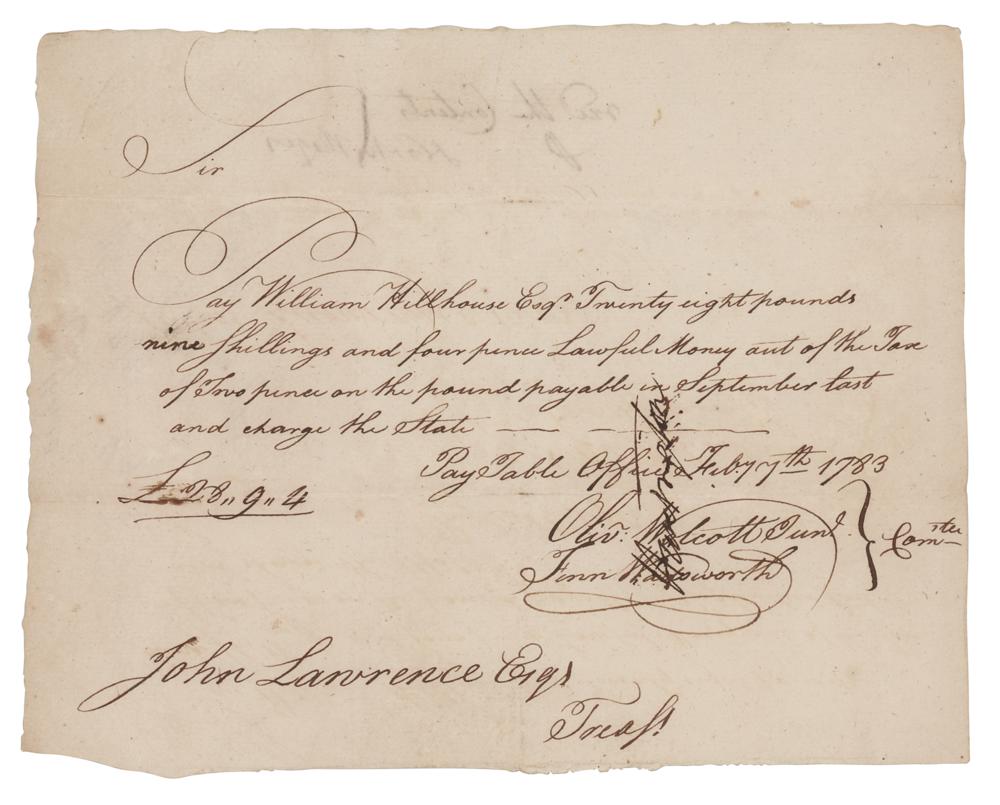 Sir
Pay William Hillhouse Esqr. Twenty eight pounds
nine Shillings and four pence Lawful Money out of the Tax
of Two pence on the pound payable in September last
and charge the State
Pay Table Office Feby 7th 1783
£28,, 9,, 4
Olivr. Wolcott Junr.
Fenn Wadsworth
Comtee
John Lawrence Esqr
Treasr